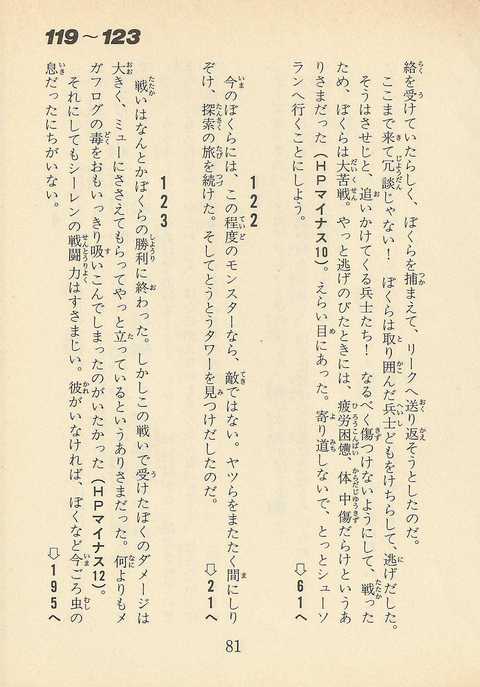 119～123
絡を受けていたらしく、ぼくらを捕まえて、リークへ送り返そうとしたのだ。
ここまで来て冗談じゃない！　ぼくらは取り囲んだ兵士どもをけちらして、逃げだした。
そうはさせじと、追いかけてくる兵士たち！　なるべく傷つけないようにして、戦った
ため、ぼくらは大苦戦。やっと逃げのびたときには、疲労困憊、体中傷だらけというあ
りさまだった（ＨＰマイナス10）。えらい目にあった。寄り道しないで、とっとシューソ
ランへ行くことにしよう。
⇨61へ
122
今のぼくらには、この程度のモンスターなら、敵ではない。ヤツらをまたたく間にしり
ぞけ、探索の旅を続けた。そしてとうとうタワーを見つけだしたのだ。
⇨21へ
123
戦いはなんとかぼくらの勝利に終わった。しかしこの戦いで受けたぼくのダメージは
大きく、ミューにささえてもらってやっと立っているというありさまだった。何よりもメ
ガフログの毒をおもいっきり吸いこんでしまったのがいたかった（ＨＰマイナス12）。
それにしてもシーレンの戦闘力はすさまじい。彼がいなければ、ぼくなど今ごろ虫の
息だったにちがいない。
⇨195へ
81